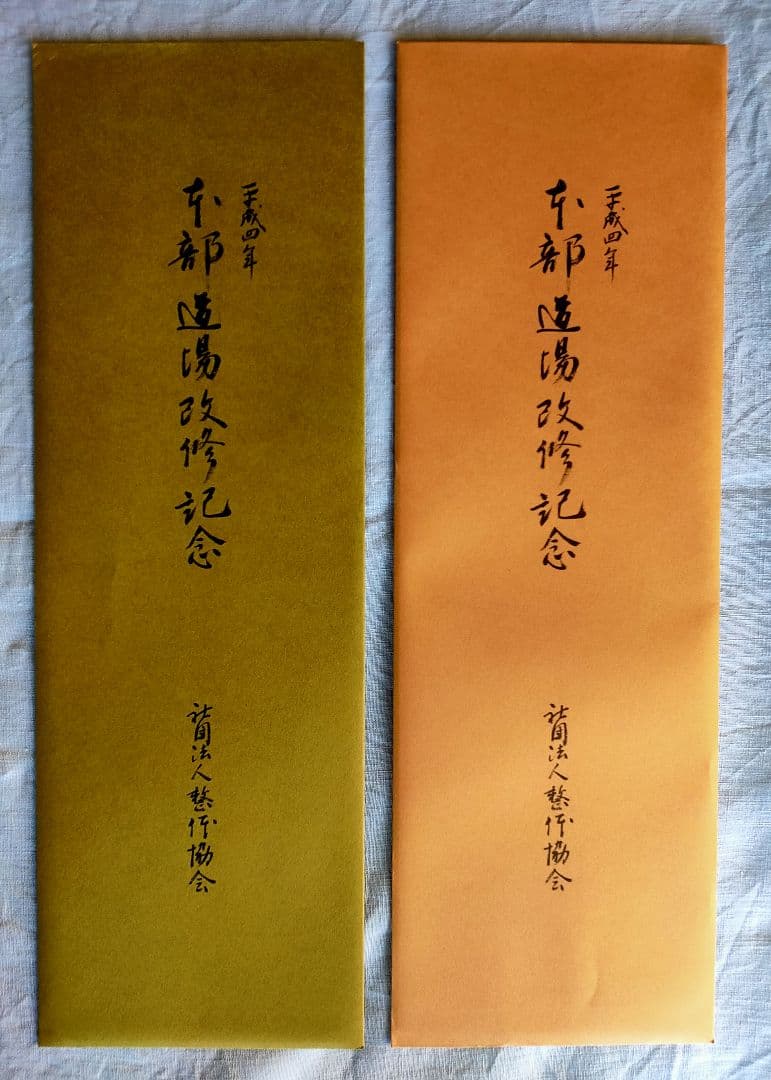 平成四年
本部道場改修記念
社団法人整体協会
平成四年
本部道場改修記念
社団法人整体協会